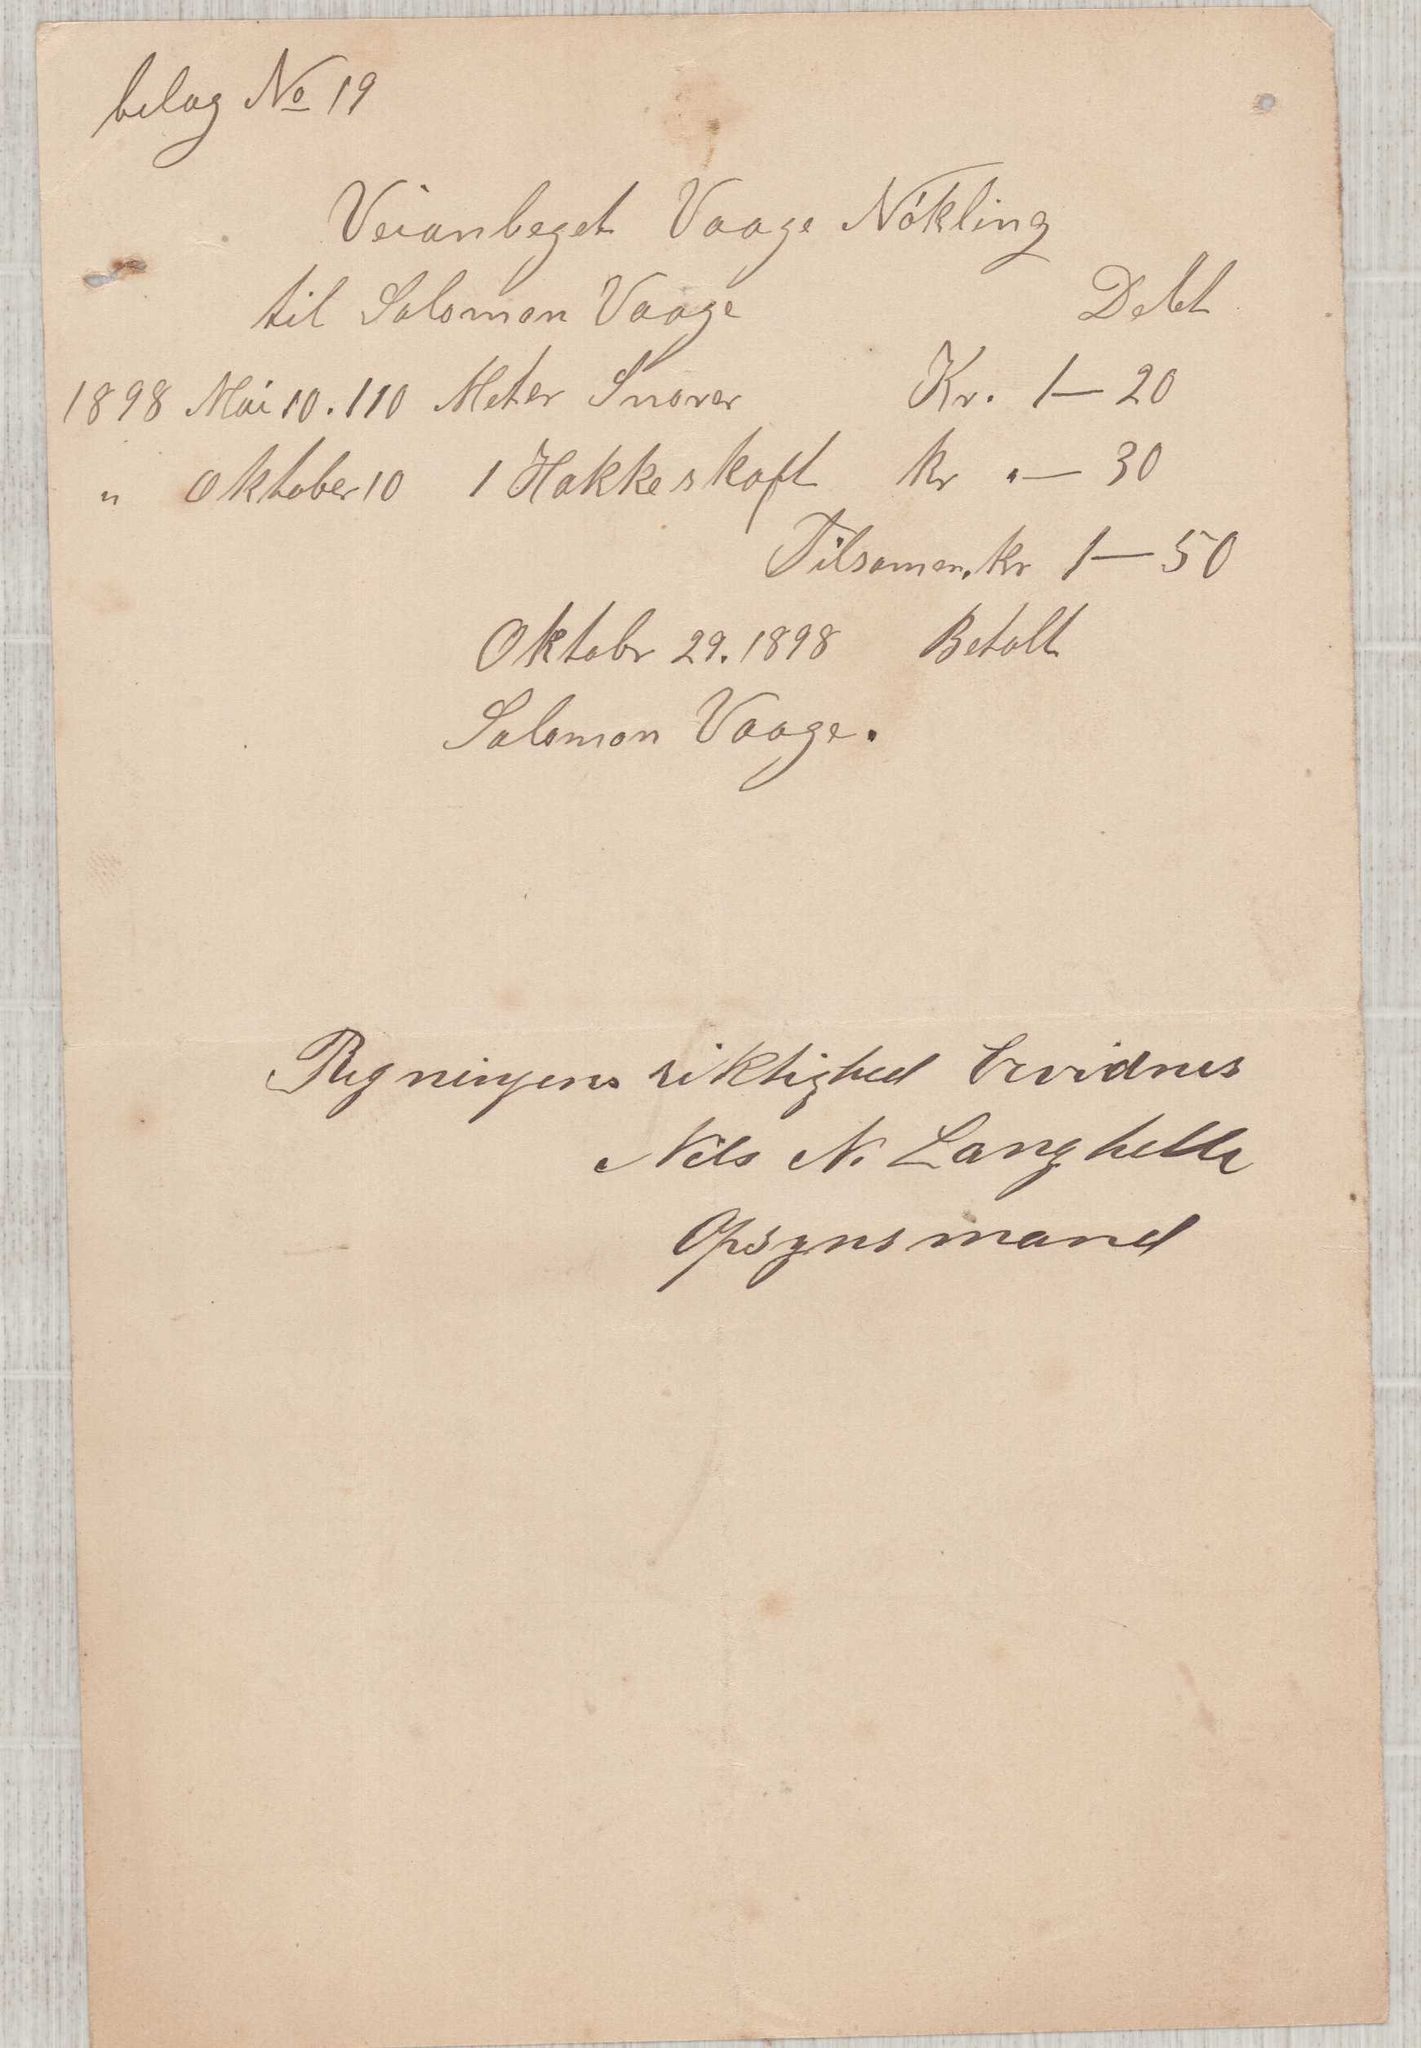 belag No 19
Veianleget Vaage Nökling
til Salomon Vaage Debt
1898 Mai 10. 110 Meter Snorer Kr. 1—20
" Oktober 10 1 Hakkeskaft kr "— 30
Tilsamen. kr 1—50
Oktobr 29. 1898 Betalt
Salomon Vaage.
Regningens riktighed bevidnes
Nils N. Langhelle
Opsynsmand